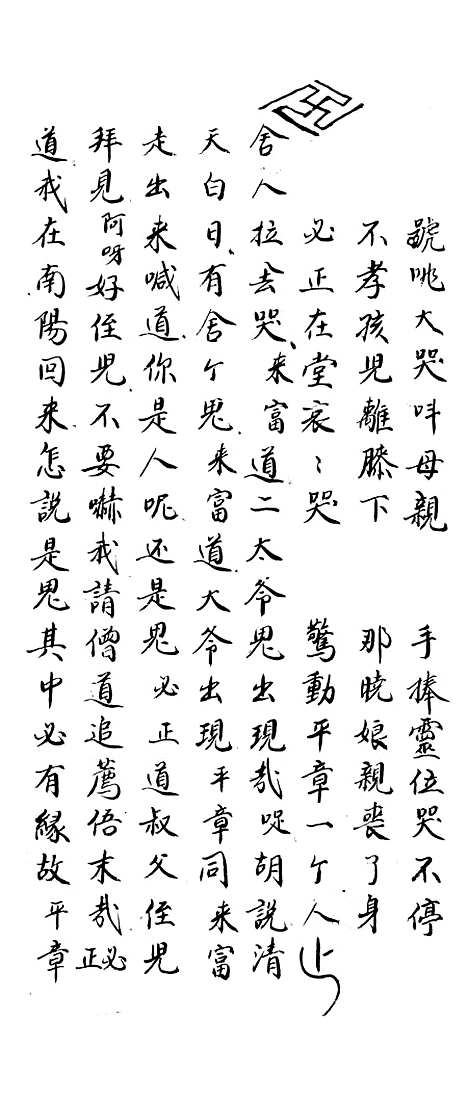 號咷大哭呌母親 手捧靈位哭不停
不孝孩兒離膝下 那曉娘親喪了身
必正在堂哀〻哭 驚動平章一个人
舍人拉去哭、来富道二太爷鬼出現哉啶胡説清
天白日、有舍个鬼来富道大爷出現平章同来富
走出来喊道你是人呢还是鬼必正道叔父侄兒
拜見阿呀好侄兒不要嚇我請僧道追薦倍末哉必正
道我在南陽回来怎説是鬼其中必有緣故平章